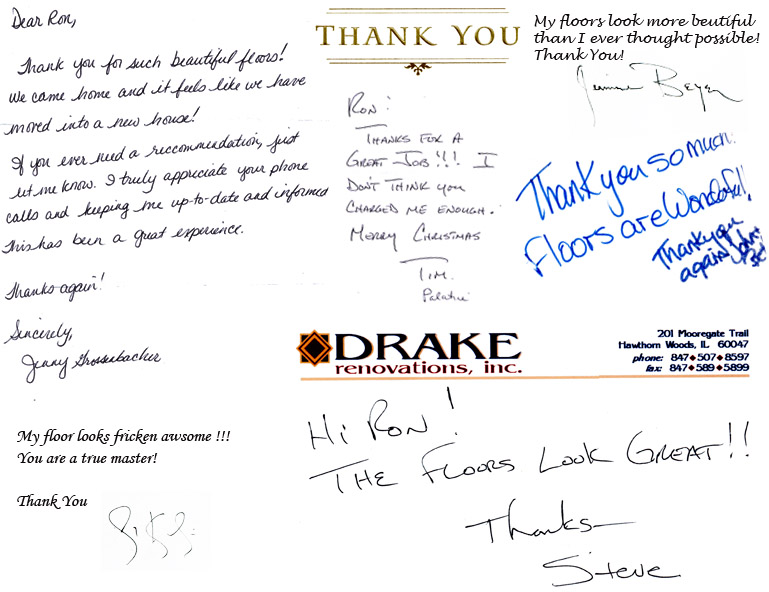 Dear Ron,
Thank you for such beautiful floors!
We came home and it feels like we have
moved into a new house!
If you ever need a reccommendation, just
let me know. I truly appreciate your phone
calls and keeping me up-to-date and informed
This has been a great experience.
Thanks again!
Sincerely,
Jenny Grossenbacher
THANK YOU
RON!
THANKS FOR A
GREAT JOB!!! I
DON'T THINK YOU
CHARGED ME ENOUGH.
MERRY CHRISTMAS
TIM.
Palatine
My floors look more beutiful
than I ever thought possible!
Thank You!
Beyer
Thank you so much.
Floors are Wonderful!
Thank you
again
DRAKE
renovations, inc.
201 Mooregate Trail
Hawthorn Woods, IL 60047
phone: 847◆507◆8597
fax: 847◆589◆5899
HI RON!
THE FLOORS LOOK GREAT!!
Thanks-
Steve
My floor looks fricken awsome !!!
You are a true master!
Thank You